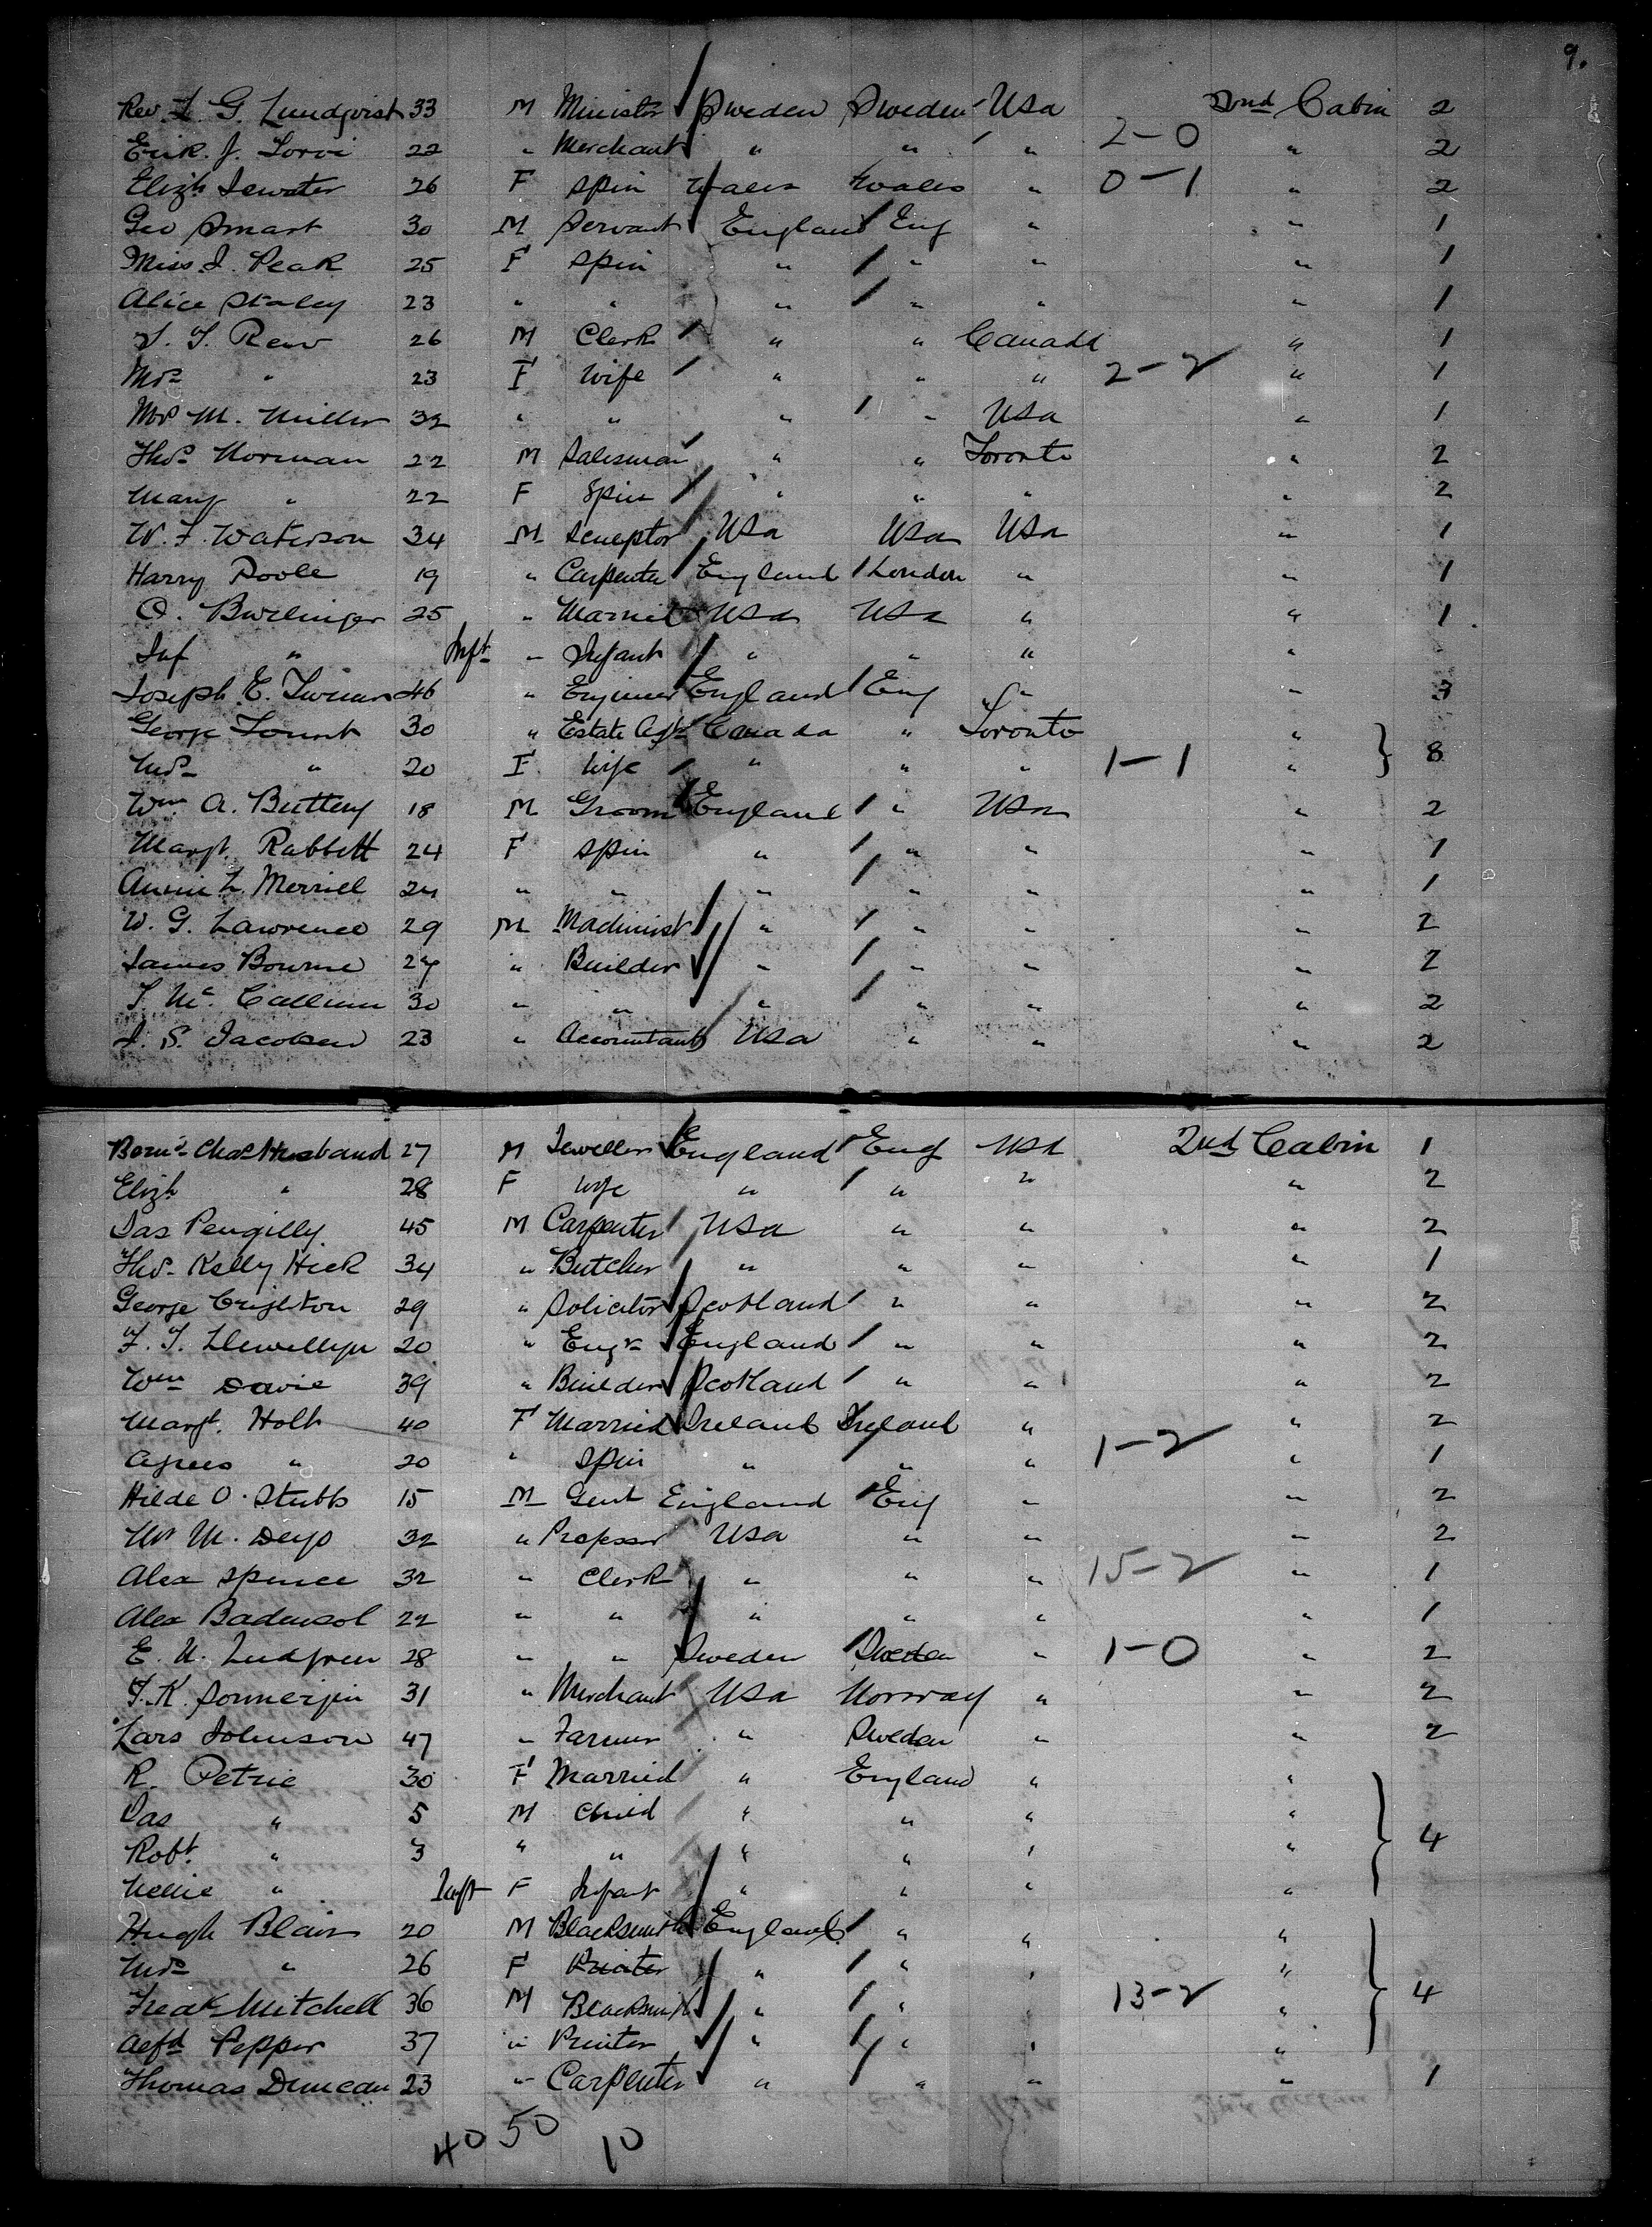 9.
Rev. L. G. Lundqvist 33 M Minister Sweden Sweden Usa 2nd Cabin 2
Erik. J. 22 " Merchant " " " 2-0 " 2
Elizh 26 F Spin Wales Wales " 0-1 " 2
Geo Smart 30 M Servant England Eng " " 1
Miss I. Peak 25 F Spin " " " " 1
Alice Staley 23 " " " " " " 1
Rew 26 M Clerk " " Canada " 1
Mrs " 23 F Wife " " " 2-2 " 1
Mrs M. Miller 32 " " " " Usa " 1
Thos Norman 22 M Salesman " " Toronto " 2
Mary " 22 F Spin " " " " 2
W. F. Waterson 34 M Sculptor Usa Usa Usa " 1
Harry Poole 19 " Carpenter England London " " 1
O. Burlinger 25 " Married Usa Usa " " 1
Inf " Inft " Infant " " " "
Joseph E. 46 " Engineer England Eng " " 3
George 30 " Estate Agt Canada " Toronto " } 8
Mrs " 20 F Wife " " " 1-1 "
Wm A. Buttery 18 M Groom England " Usa " 2
Margt. Rabbett 24 F Spin " " " " 1
Annie L. Merrill 24 " " " " " " 1
W. G. Lawrence 29 M Machinist " " " " 2
James Bourne 27 " Builder " " " " 2
McCallum 30 " " " " " " 2
I. S. Jacobsen 23 " Accountant Usa " " " 2
Chas Husband 27 M Jeweller England Eng Usa 2nd Cabin 1
Elizh " 28 F Wife " " " " 2
Jas Pengilly 45 M Carpenter Usa " " " 2
Thos Kelly Hick 34 " Butcher " " " " 1
George Crighton 29 " Solicitor Scotland " " " 2
Llewellyn 20 " Engr England " " " 2
Wm Davie 39 " Builder Scotland " " " 2
Margt. Holt 40 F Married Ireland Ireland " " 2
Agnes " 20 " Spin " " " 1-2 " 1
O. Stubbs 15 M Gent England Eng " " 2
M. Deys 32 " Professor Usa " " " 2
Alex Spence 32 " Clerk " " " 15-2 " 1
Alex 22 " " " " " " 1
E. 28 " " Sweden Sweden " 1-0 " 2
K. 31 " Merchant Usa Norway " " 2
Lars Johnson 47 " Farmer " Sweden " " 2
R. Petrie 30 F Married " England " " } 4
Jas " 5 M Child " " " "
Robt. " 3 " " " " " "
Nellie " Inft F Infant " " " "
Hugh Blair 20 M Blacksmith England " " " } 4
Mrs " 26 F " " " "
Mitchell 36 M Blacksmith " " " 13-2 "
Alfd Pepper 37 " Printer " " " "
Thomas Duncan 23 " Carpenter " " " " 1
40 50
10